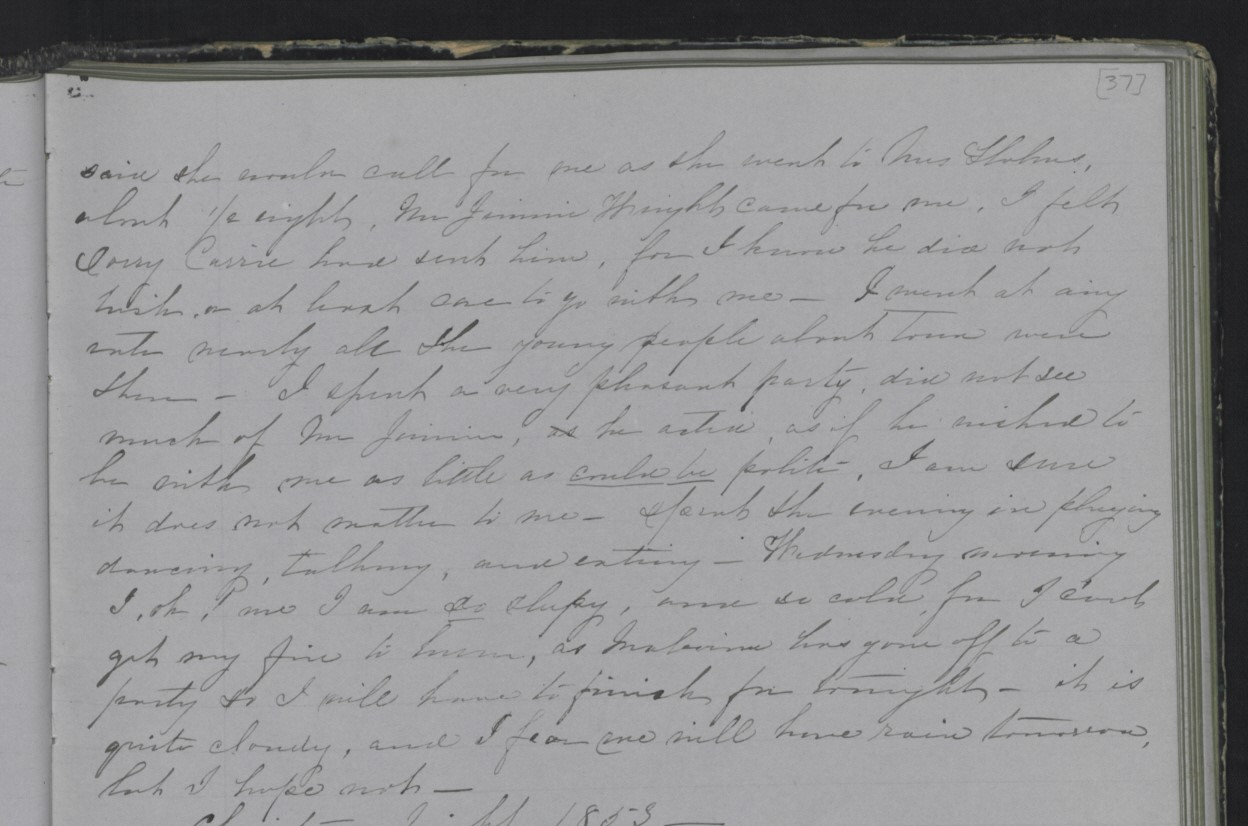 [37]
said she would call for me as she went to Mrs Holmes,
about 1/2 eight, Mr Jimmie Wright came for me, I felt
sorry Carrie had sent him, for I know he did not
wish, or at least care to go with me — I went at any
rate nearly all the young people about town were
there — I spent a very pleasant party, did not see
much of Mr Jimmie, as he acted, as if he wished to
be with me as little as could be polite, I am sure
it does not matter to me — Spent the evening in playing
dancing, talking, and eating — Wednesday morning
I, oh! me I am so sleepy, and so cold, for I cant
get my fire to burn, as Malvina has gone off to a
party so I will have to finish for tonight — it is
quite cloudy, and I fear we will have rain tomorrow,
but I hope not —
night 1853 —